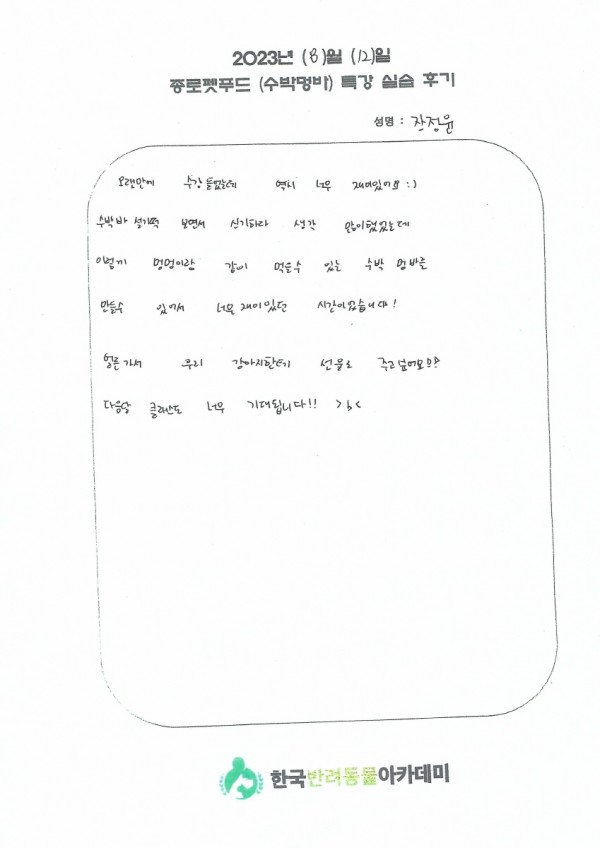 2023년 (8)월 (12)일
종로펫푸드 (수박멍바) 특강 실습 후기
성명 : 장정윤
오랜만에 수강 들었는데 역시 너무 재미있어요 :)
수박바 설기떡 보면서 신기하다 생각 많이했었는데
이렇게 멍멍이랑 같이 먹을수 있는 수박 멍바를
만들수 있어서 너무 재미있던 시간이었습니다!
얼른가서 우리 강아지한테 선물로 주고싶어요
다음 클래스도 너무 기대됩니다!! >3<
한국반려동물아카데미